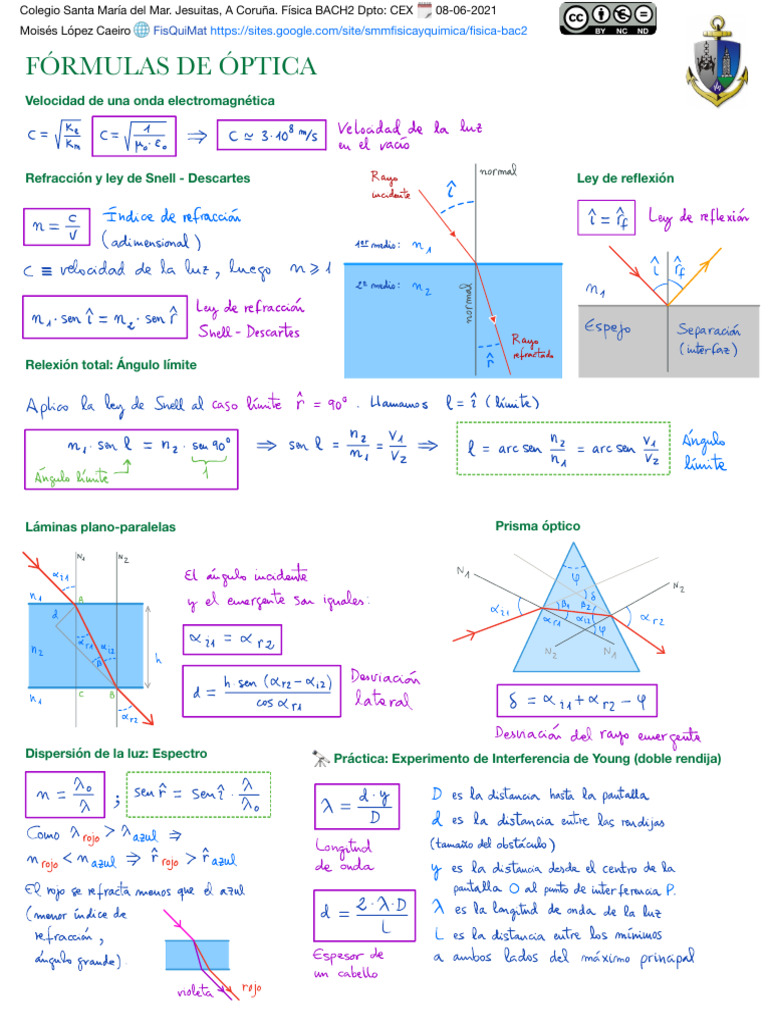 Colegio Santa María del Mar. Jesuitas, A Coruña. Física BACH2 Dpto: CEX 🗓 08-06-2021
Moisés López Caeiro 🌐 FisQuiMat https://sites.google.com/site/smmfisicayquimica/fisica-bac2
CC BY NC ND
FÓRMULAS DE ÓPTICA
Velocidad de una onda electromagnética
C = √(Ke/Km) C = √(1/(μo·εo)) ⇒ C ≃ 3·10⁸ m/s Velocidad de la luz
en el vacío
Refracción y ley de Snell - Descartes
n = c/v Índice de refracción
(adimensional)
C ≡ velocidad de la luz, luego n ⩾ 1
n₁·sen î = n₂·sen r̂ Ley de refracción
Snell-Descartes
Rayo
incidente
î
normal
1er medio: n₁
2º medio: n₂
normal
Rayo
refractado
r̂
Ley de reflexión
î = r̂f Ley de reflexión
î r̂f
n₁
Espejo
Separación
(interfaz)
Relexión total: Ángulo límite
Aplico la ley de Snell al caso límite r̂ = 90º. Llamamos l = î (límite)
n₁·sen l = n₂·sen 90º ⇒ sen l = n₂/n₁ = v₁/v₂ ⇒ l = arc sen n₂/n₁ = arc sen v₁/v₂ Ángulo
límite
Ángulo límite 1
Láminas plano-paralelas
N₁ N₂
αi1
n₁
A
d
αr1 αi2
n₂
β
h
n₁
C B
αr2
El ángulo incidente
y el emergente son iguales:
αi1 = αr2
d = h·sen (αr2 − αi2)/cos αr1 Desviación
lateral
Prisma óptico
φ
N₁ N₂
δ
αi1 β₁ β₂ αr2
αr1 αi2
φ
N₂ N₁
δ = αi1 + αr2 − φ
Desviación del rayo emergente
Dispersión de la luz: Espectro
n = λo/λ ; sen r̂ = sen î · λ/λo
Como λrojo > λazul ⇒
nrojo < nazul ⇒ r̂rojo > r̂azul
El rojo se refracta menos que el azul
(menor índice de
refracción,
ángulo grande).
violeta rojo
🔭 Práctica: Experimento de Interferencia de Young (doble rendija)
λ = d·y/D
Longitud
de onda
d = 2·λ·D/L
Espesor de
un cabello
D es la distancia hasta la pantalla
d es la distancia entre las rendijas
(tamaño del obstáculo)
y es la distancia desde el centro de la
pantalla O al punto de interferencia P.
λ es la longitud de onda de la luz
L es la distancia entre los mínimos
a ambos lados del máximo principal